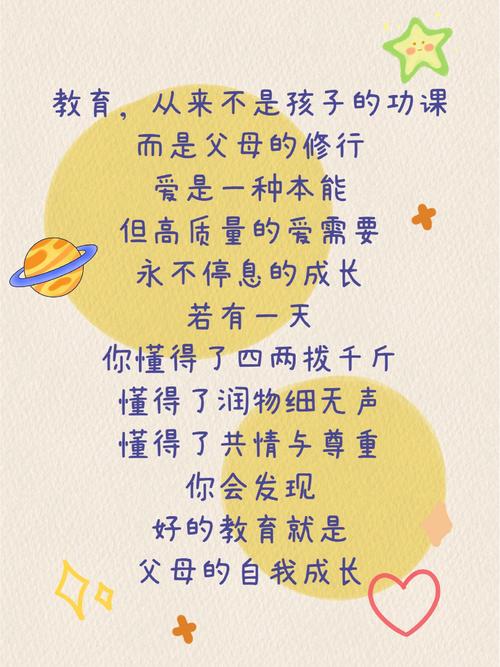 教育，从来不是孩子的功课
而是父母的修行
爱是一种本能
但高质量的爱需要
永不停息的成长
若有一天
你懂得了四两拨千斤
懂得了润物细无声
懂得了共情与尊重
你会发现
好的教育就是
父母的自我成长